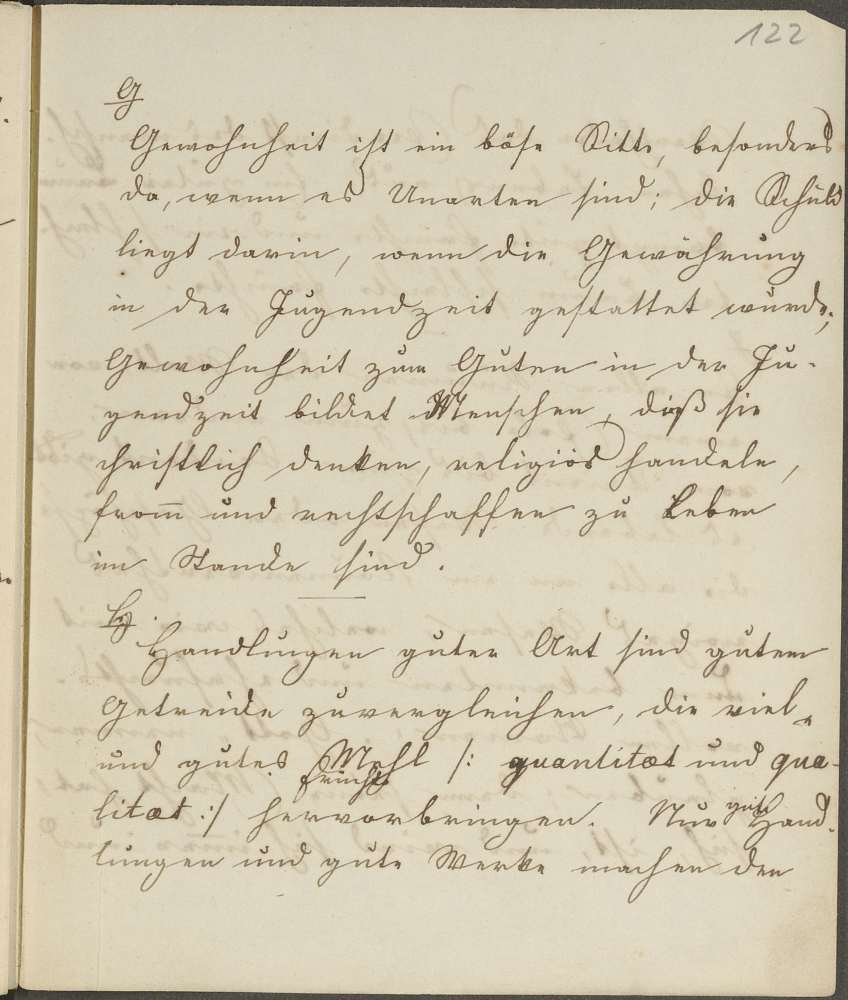 122
G
Gewohnheit ist ein böse Sitte, besonders
da, wenn es Unarten sind; die Schuld
liegt darin, wenn die Gewährung
in der Jugendzeit gestattet wurde;
Gewohnheit zum Guten in der Ju-
gendzeit bildet Menschen, daß sie
christlich denken, religiös handeln,
from̅ und rechtschaffen zu Leben
im Stande sind.
H.
Handlungen guter Art sind gutem
Getreide zuvergleichen, die viel-
und gutes Mehl /: quantitæt und qua-
Frucht
litæt :/ hervorbringen. Nur gute Hand-
lungen und gute Werke machen den